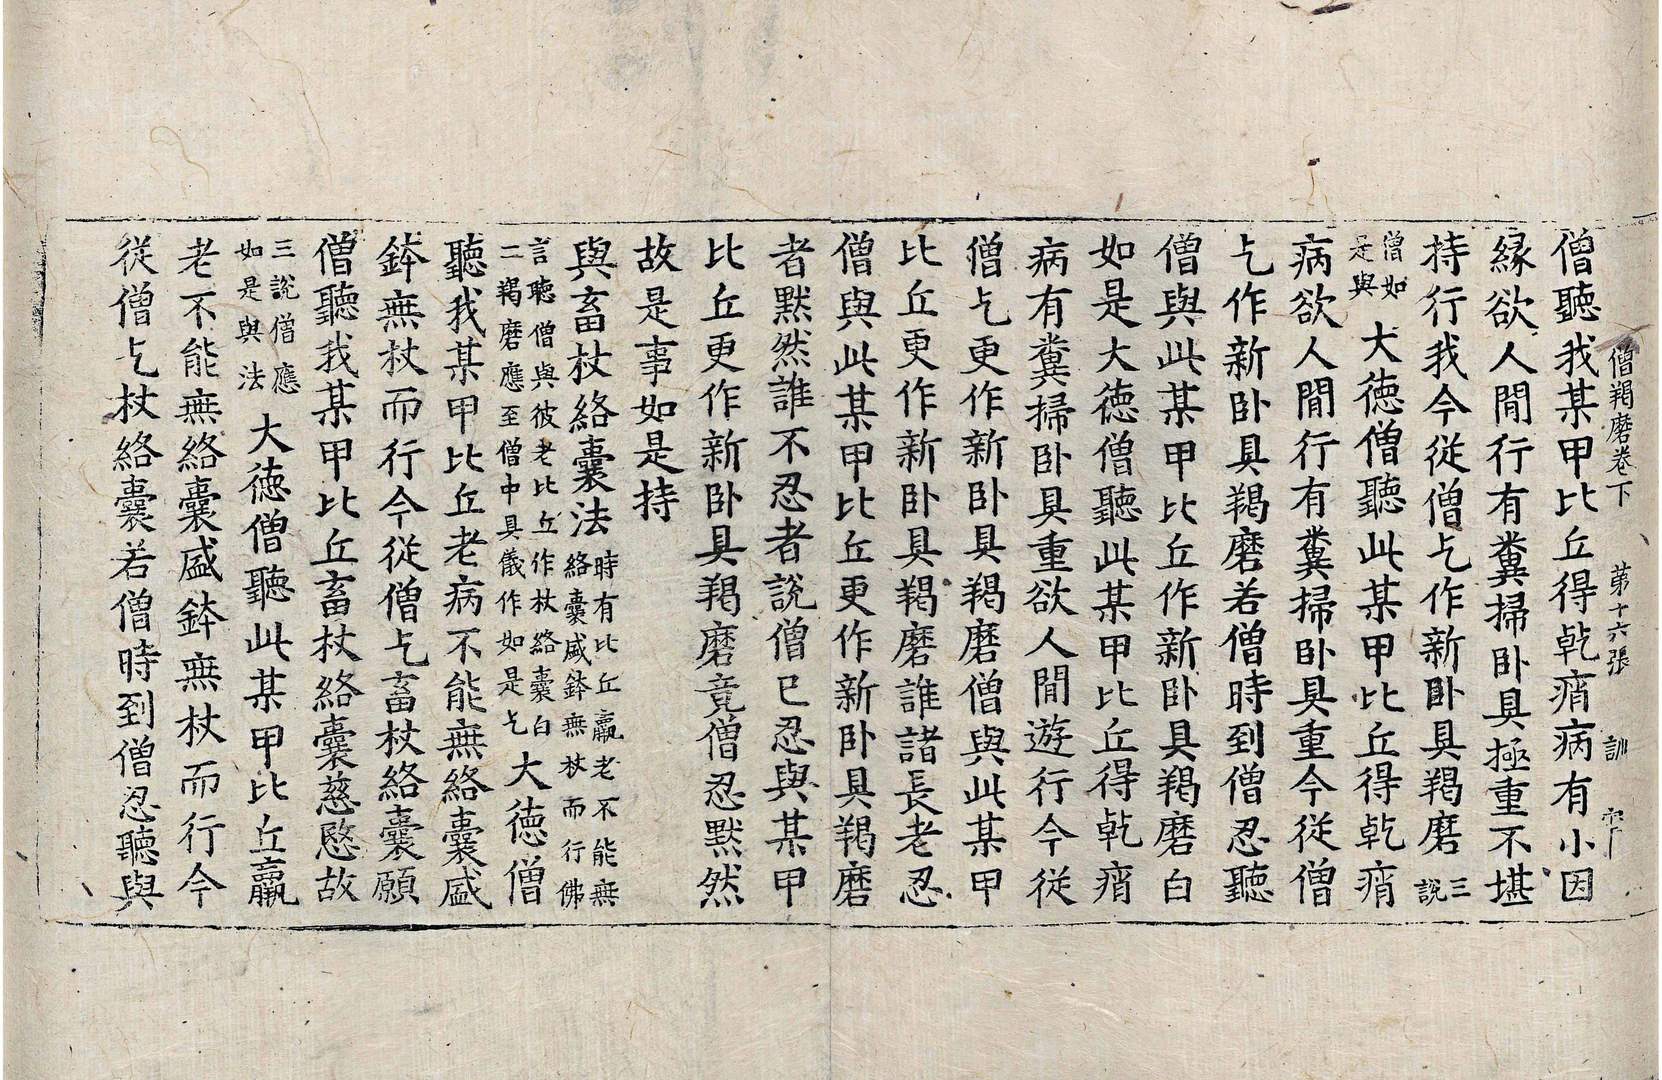 僧羯磨卷下　第十六張　訓
僧聽我某甲比丘得乾痟病有小因
緣欲人閒行有糞掃卧具極重不堪
持行我今從僧乞作新卧具羯磨三說
僧如是與大德僧聽此某甲比丘得乾痟
病欲人閒行有糞掃卧具重今從僧
乞作新卧具羯磨若僧時到僧忍聽
僧與此某甲比丘作新卧具羯磨白
如是大德僧聽此某甲比丘得乾痟
病有糞掃卧具重欲人閒遊行今從
僧乞更作新卧具羯磨僧與此某甲
比丘更作新卧具羯磨誰諸長老忍
僧與此某甲比丘更作新卧具羯磨
者默然誰不忍者說僧已忍與某甲
比丘更作新卧具羯磨竟僧忍默然
故是事如是持
與畜杖絡囊法時有比丘羸老不能無絡囊盛鉢無杖而行佛
言聽僧與彼老比丘作杖絡囊白二羯磨應至僧中具儀作如是乞大德僧
聽我某甲比丘老病不能無絡囊盛
鉢無杖而行今從僧乞畜杖絡囊願
僧聽我某甲比丘畜杖絡囊慈愍故
三說僧應如是與法大德僧聽此某甲比丘羸
老不能無絡囊盛鉢無杖而行今
從僧乞杖絡囊若僧時到僧忍聽與